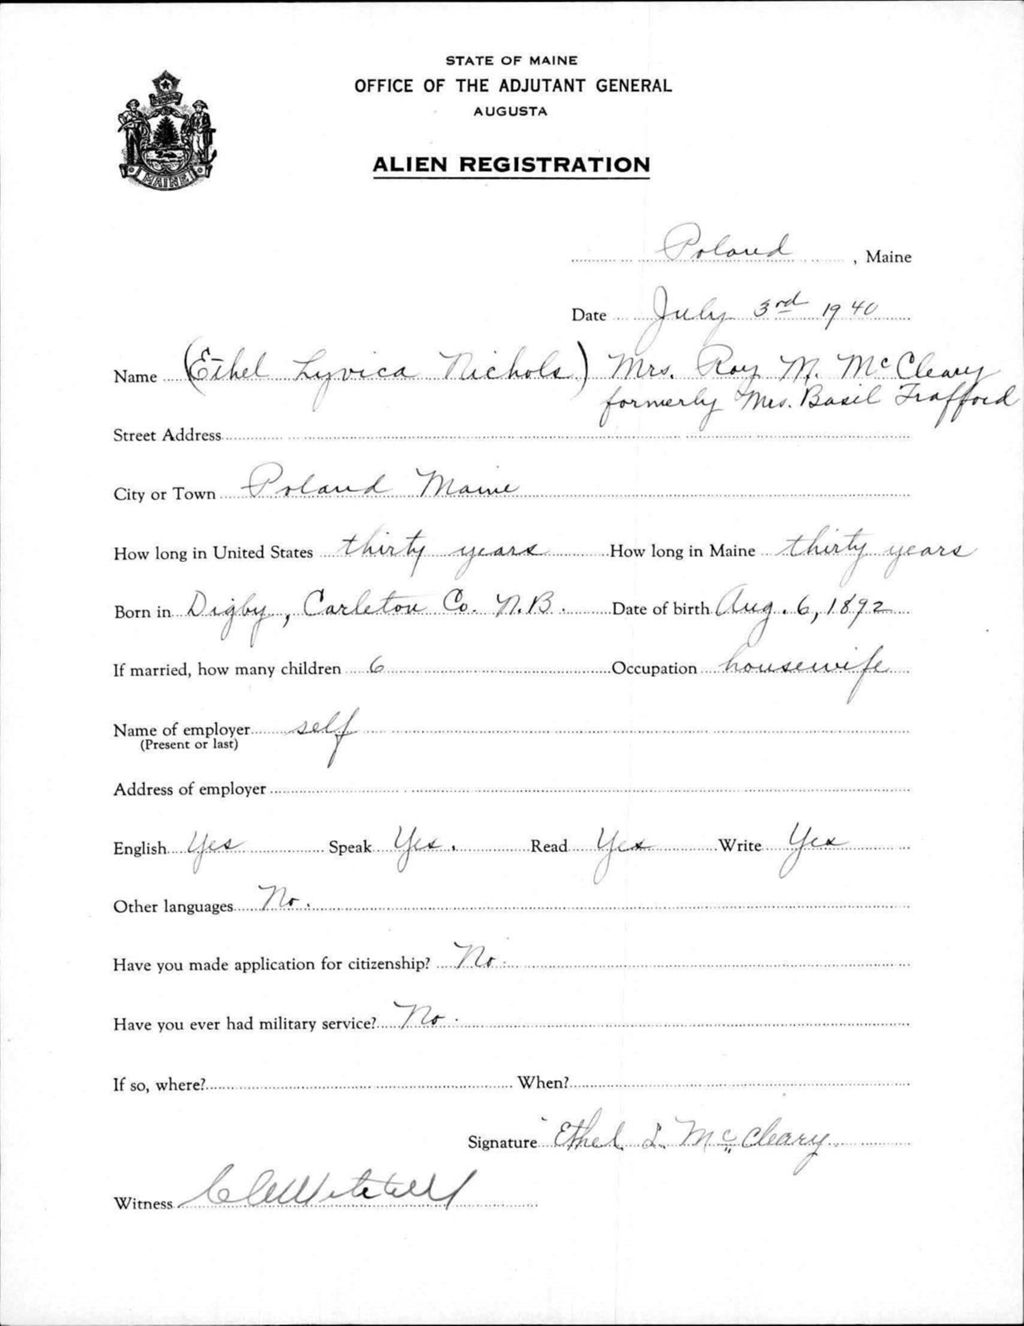 STATE OF MAINE
OFFICE OF THE ADJUTANT GENERAL
AUGUSTA
ALIEN REGISTRATION
MAINE
Poland, Maine
Date July 3rd 1940
Name (Ethel Lyvica Nichols) Mrs. Roy M. McCleary
formerly Mrs. Basil Trafford
Street Address
City or Town Poland Maine
How long in United States thirty years How long in Maine thirty years
Born in Digby, Carleton Co. N.B. Date of birth Aug. 6, 1892
If married, how many children 6 Occupation housewife
Name of employer self
(Present or last)
Address of employer
English Yes Speak Yes. Read Yes Write Yes
Other languages No.
Have you made application for citizenship? No.
Have you ever had military service? No.
If so, where? When?
Signature Ethel L. McCleary
Witness